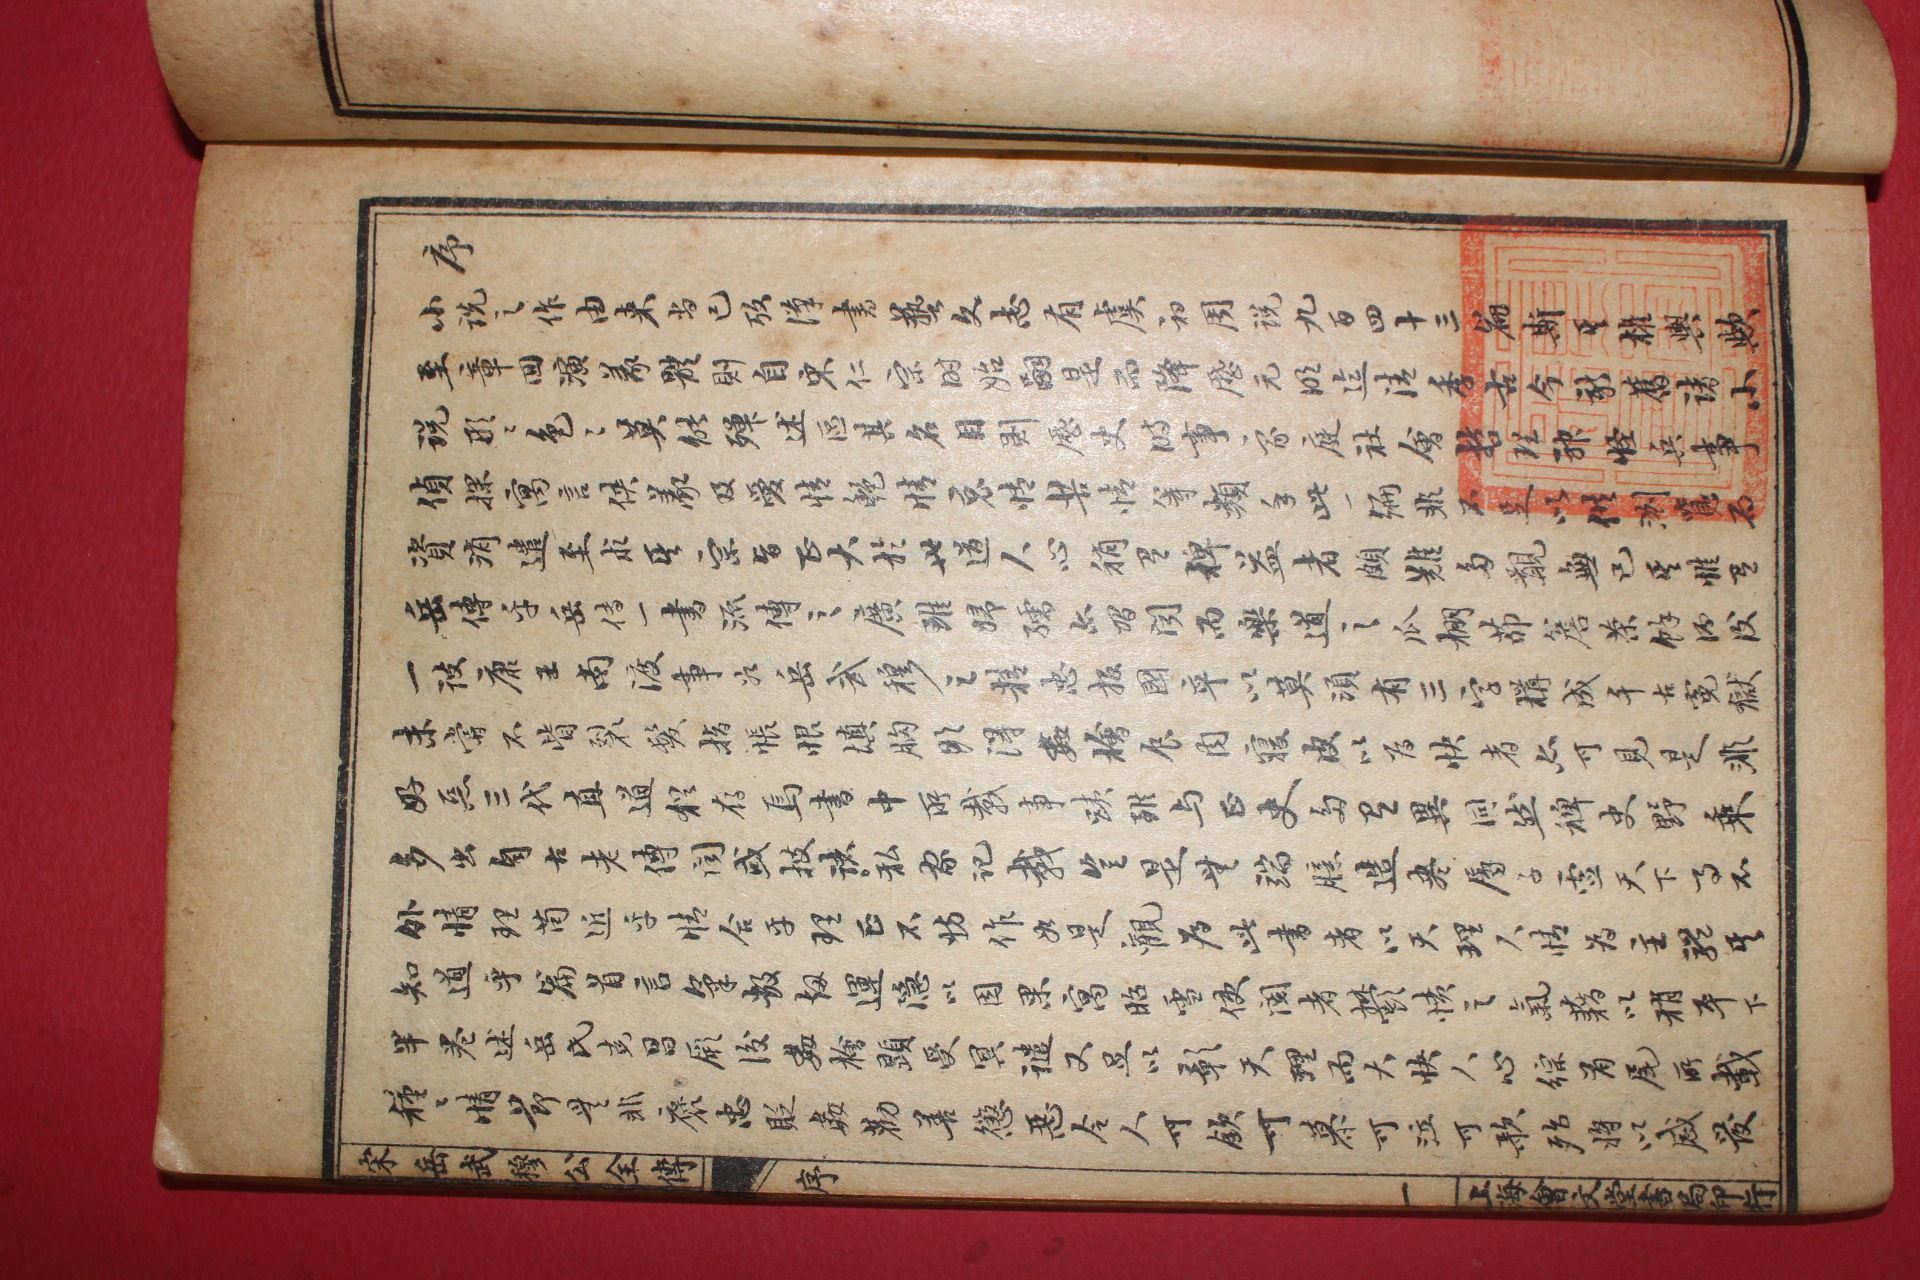 序
小說之作由來尚已攷漢書藝文志有虞初周說九百四十三篇斯其權輿歟
至章回演義體則自宋仁宗時始嗣是而降歷元明迄清季古今新舊諸小
說形〻色〻莫能殫述區其名目則歷史時事家庭社會哲理神怪兵事
偵探寓言俠義及愛情艷情哀情苦情等類手此一編非不足以供瀏覽而
資消遣至求其宗旨正大於世道人心稍有裨益者頗難多觀無已其惟有
岳傳乎岳傳一書流傳之廣雖婦孺亦習聞而樂道之瓜棚茆簷茶餘酒後
一談康王南渡事如岳武穆之精忠報國卒以莫須有三字搆成千古冤獄
未嘗不眥裂髮指悵恨填胸欲得姦檜辰肉寢皮以為快者亦可見是非
好惡三代直道猶存焉書中所載事蹟雖与正史多有異同然稗史野乘
多出自古老傳聞或披諸私家記載豈是無端臆造盡屬子虛天下事不
外情理苟近乎情合乎理正不妨作如是觀為此書者以天理人情為主體其
知道乎篇首言氣數劫運隱以因果寓昭雪使閱者鬱憤之氣藉以稍平下
半卷述岳氏克昌厥後姦檜顯受冥譴又足以彰天理而大快人心綜首尾所載
種〻情節無非褒忠貶姦勸善懲惡令人可欽可慕可泣可歌殆將以感發
宋岳武穆公全傳
序
一
上海會文堂書局印行